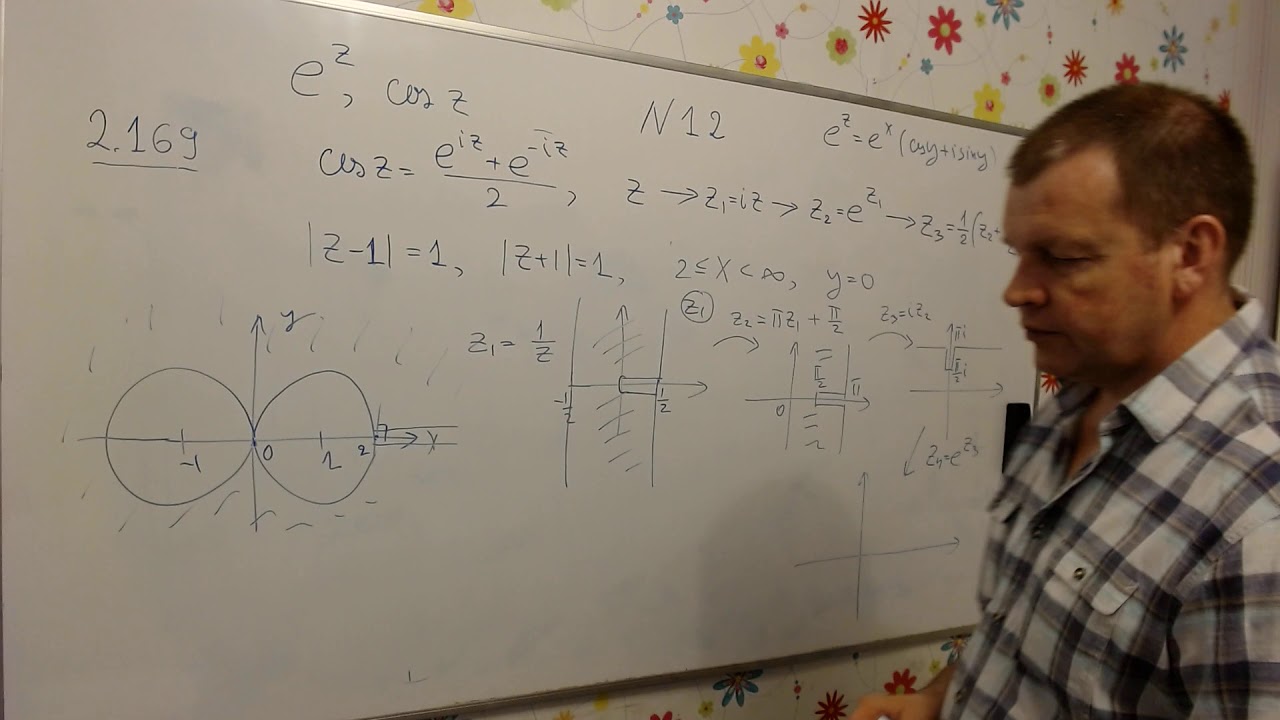 e^z, cos z
2.169
N12
e^z = e^x (cos y + i sin y)
cos z = (e^{iz} + e^{-iz})/2, z → z₁ = iz → z₂ = e^{z₁} → z₃ = 1/2 (z₂ +
|z-1| = 1, |z+1| = 1, 2 ≤ x < ∞, y = 0
y
-1 0 1 2 x
z₁ = 1/z
-1/2 1/2
z₁
z₂ = πz₁ + π/2
0 π/2 π
z₃ = iz₂
πi
π/2 i
z₄ = e^{z₃}